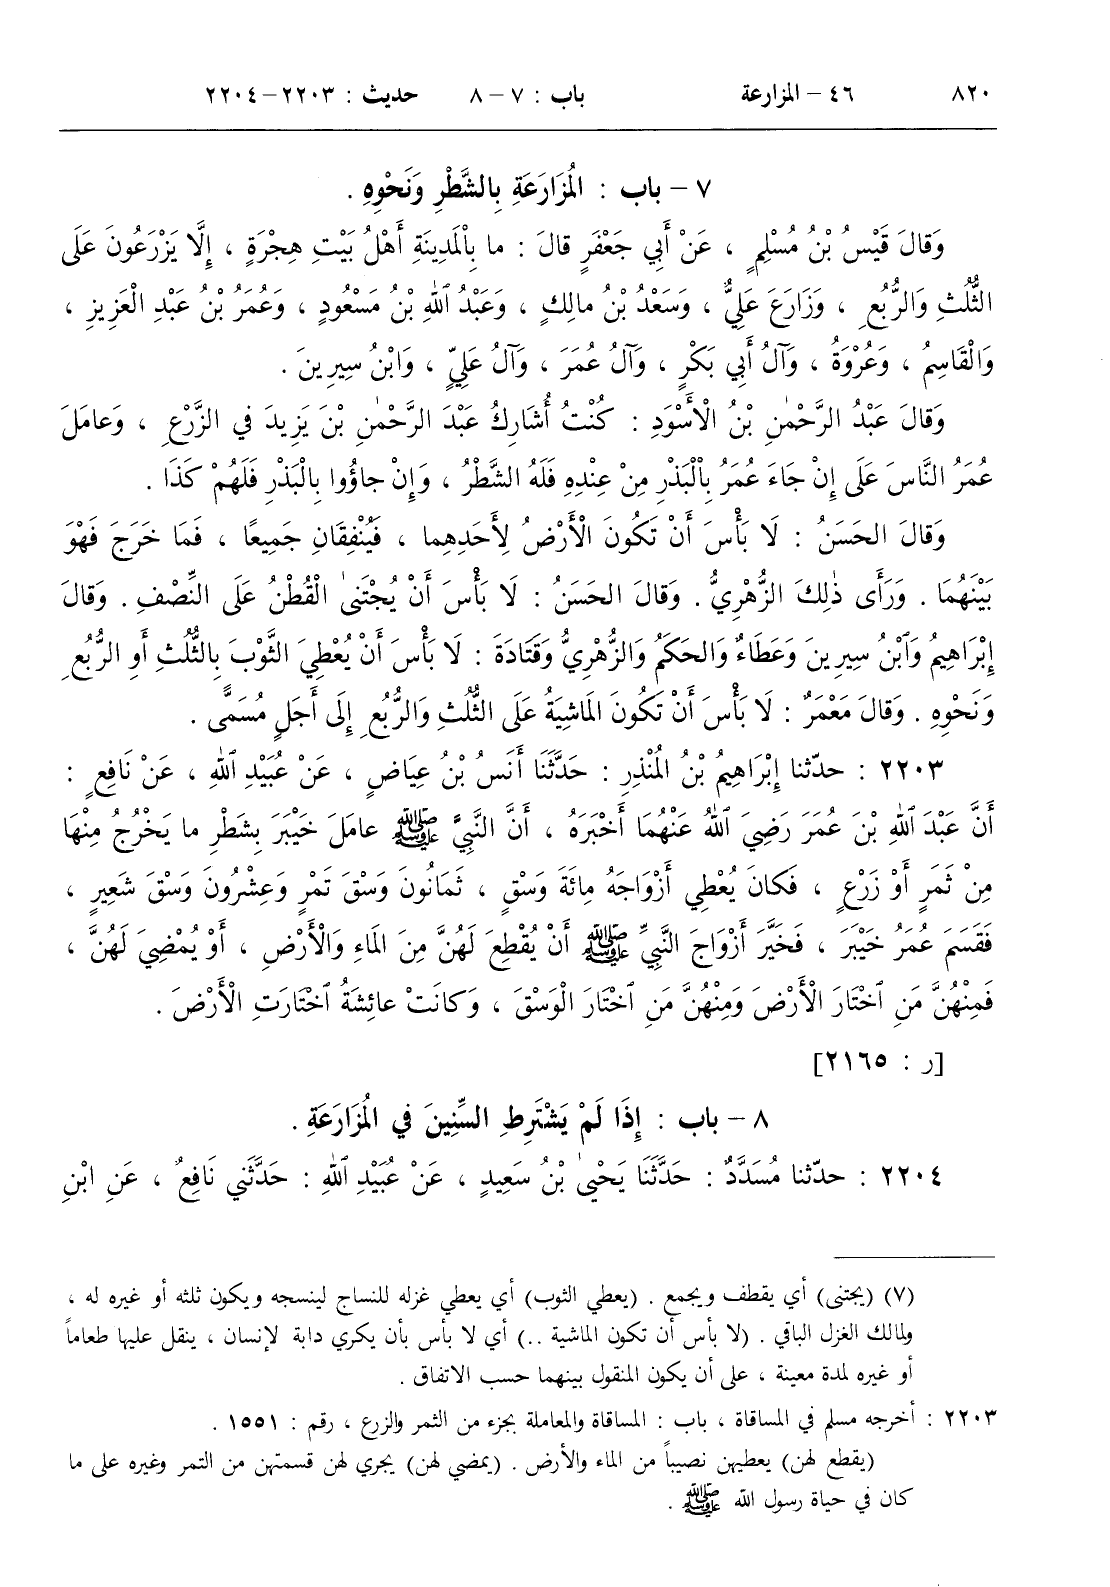 ٨٢٠ ٤٦ – المزارعة باب : ٧ – ٨ حديث : ٢٢٠٣–٢٢٠٤
٧ – باب : الْمُزَارَعَةِ بِالشَّطْرِ وَنَحْوِهِ .
وَقالَ قَيْسُ بْنُ مُسْلِمٍ ، عَنْ أَبِي جَعْفَرٍ قالَ : ما بِالْمَدِينَةِ أَهْلُ بَيْتِ هِجْرَةٍ ، إِلَّا يَزْرَعُونَ عَلَى
الثُّلُثِ وَالرُّبُعِ ، وَزَارَعَ عَلِيٌّ ، وَسَعْدُ بْنُ مالِكٍ ، وَعَبْدُ اللهِ بْنُ مَسْعُودٍ ، وَعُمَرُ بْنُ عَبْدِ الْعَزِيزِ ،
وَالْقَاسِمُ ، وَعُرْوَةُ ، وَآلُ أَبِي بَكْرٍ ، وَآلُ عُمَرَ ، وَآلُ عَلِيٍّ ، وَابْنُ سِيرِينَ .
وَقالَ عَبْدُ الرَّحْمٰنِ بْنُ الْأَسْوَدِ : كُنْتُ أُشَارِكُ عَبْدَ الرَّحْمٰنِ بْنَ يَزِيدَ في الزَّرْعِ ، وَعامَلَ
عُمَرُ النَّاسَ عَلَى إِنْ جَاءَ عُمَرُ بِالْبَذْرِ مِنْ عِنْدِهِ فَلَهُ الشَّطْرُ ، وَإِنْ جاؤُوا بِالْبَذْرِ فَلَهُمْ كَذَا .
وَقالَ الحَسَنُ : لَا بَأْسَ أَنْ تَكُونَ الْأَرْضُ لِأَحَدِهِما ، فَيُنْفِقَانِ جَمِيعًا ، فَمَا خَرَجَ فَهْوَ
بَيْنَهُمَا . وَرَأَى ذٰلِكَ الزُّهْرِيُّ . وَقالَ الحَسَنُ : لَا بَأْسَ أَنْ يُجْتَنىٰ الْقُطْنُ عَلَى النِّصْفِ . وَقالَ
إِبْرَاهِيمُ وَٱبْنُ سِيرِينَ وَعَطَاءٌ وَالحَكَمُ وَالزُّهْرِيُّ وَقَتَادَةُ : لَا بَأْسَ أَنْ يُعْطِيَ الثَّوْبَ بِالثُّلُثِ أَوِ الرُّبُعِ
وَنَحْوِهِ . وَقالَ مَعْمَرٌ : لَا بَأْسَ أَنْ تَكُونَ المَاشِيَةُ عَلَى الثُّلُثِ وَالرُّبُعِ إِلَى أَجَلٍ مُسَمًّى .
٢٢٠٣ : حدّثنا إِبْرَاهِيمُ بْنُ المُنْذِرِ : حَدَّثَنَا أَنَسُ بْنُ عِيَاضٍ ، عَنْ عُبَيْدِ ٱللهِ ، عَنْ نَافِعٍ :
أَنَّ عَبْدَ ٱللهِ بْنَ عُمَرَ رَضِيَ ٱللهُ عَنْهُمَا أَخْبَرَهُ ، أَنَّ النَّبِيَّ ﷺ عامَلَ خَيْبَرَ بِشَطْرِ ما يَخْرُجُ مِنْهَا
مِنْ ثَمَرٍ أَوْ زَرْعٍ ، فَكانَ يُعْطِي أَزْوَاجَهُ مِائَةَ وَسْقٍ ، ثَمَانُونَ وَسْقَ تَمْرٍ وَعِشْرُونَ وَسْقَ شَعِيرٍ ،
فَقَسَمَ عُمَرُ خَيْبَرَ ، فَخَيَّرَ أَزْوَاجَ النَّبِيِّ ﷺ أَنْ يُقْطِعَ لَهُنَّ مِنَ المَاءِ وَالْأَرْضِ ، أَوْ يُمْضِيَ لَهُنَّ ،
فَمِنْهُنَّ مَنِ ٱخْتَارَ الْأَرْضَ وَمِنْهُنَّ مَنِ ٱخْتَارَ الْوَسْقَ ، وَكانَتْ عائِشَةُ ٱخْتَارَتِ الْأَرْضَ .
[ر : ٢١٦٥]
٨ – باب : إِذَا لَمْ يَشْتَرِطِ السِّنِينَ في المُزَارَعَةِ .
٢٢٠٤ : حدّثنا مُسَدَّدٌ : حَدَّثَنَا يَحْيىٰ بْنُ سَعِيدٍ ، عَنْ عُبَيْدِ ٱللهِ : حَدَّثَنِي نَافِعٌ ، عَنِ ابْنِ
(٧) (يجتنى) أي يقطف ويجمع . (يعطي الثوب) أي يعطي غزله للنساج لينسجه ويكون ثلثه أو غيره له ،
ولمالك الغزل الباقي . (لا بأس أن تكون الماشية ..) أي لا بأس بأن يكري دابة لإنسان ، ينقل عليها طعاماً
أو غيره لمدة معينة ، على أن يكون المنقول بينهما حسب الاتفاق .
٢٢٠٣ : أخرجه مسلم في المساقاة ، باب : المساقاة والمعاملة بجزء من الثمر والزرع ، رقم : ١٥٥١ .
(يقطع لهن) يعطيهن نصيباً من الماء والأرض . (يمضي لهن) يجري لهن قسمتهن من التمر وغيره على ما
كان في حياة رسول الله ﷺ .